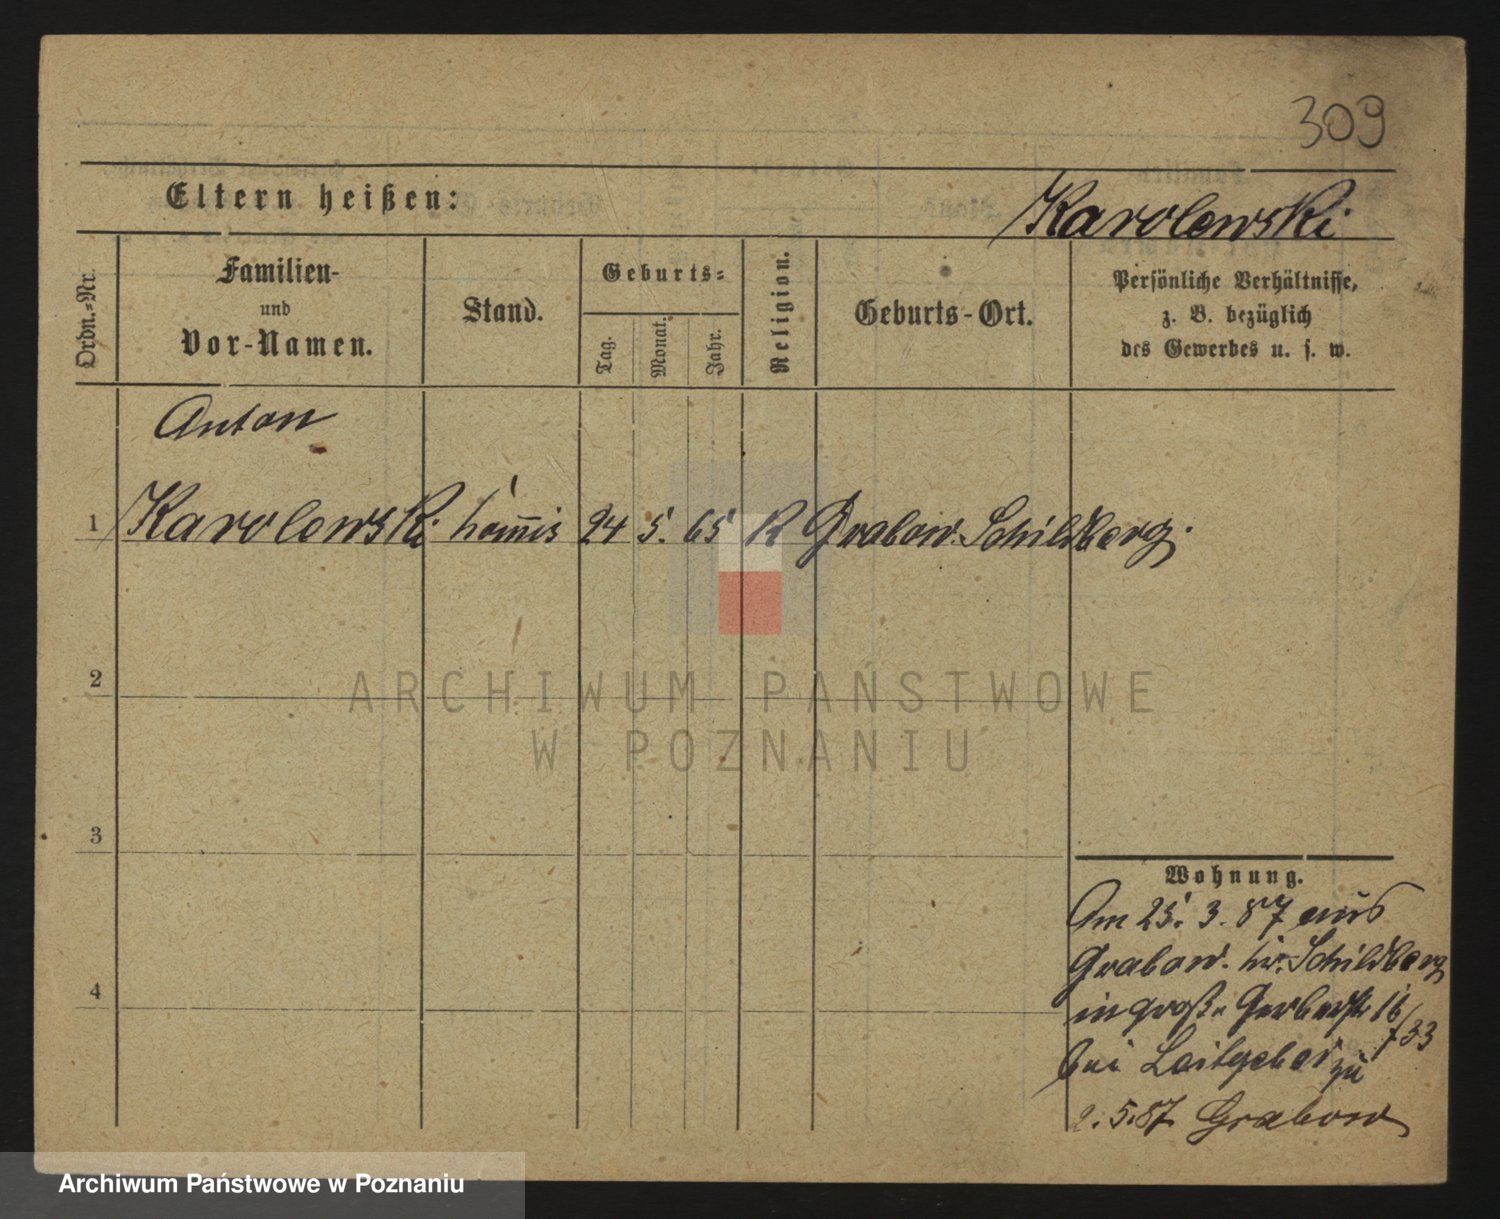 309
Eltern heißen:
Karolewski
Ordn.=Nr.
Familien-
und
Vor-Namen.
Stand.
Geburts=
Tag.
Monat.
Jahr.
Religion.
Geburts-Ort.
Persönliche Verhältnisse,
z. B. bezüglich
des Gewerbes u. s. w.
Anton
1 Karolewski Com̄is 24 5. 65 K Grabow. Schildberg.
2
ARCHIWUM PAŃSTWOWE
W POZNANIU
3
Wohnung.
Am 25. 3. 87 aus
Grabow. Schildberg
in große Gerberstr 16
/33
bei Leitgeber
zu
2. 5. 87 Grabow
4
Archiwum Państwowe w Poznaniu